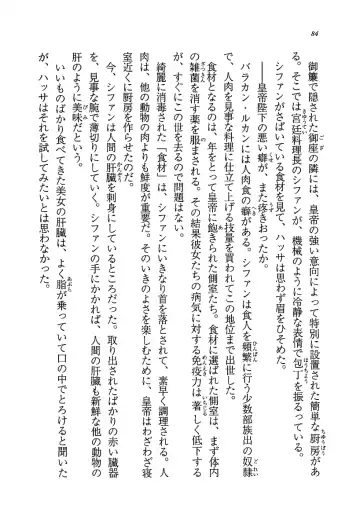 84
御簾で隠された御座の隣には、皇帝の強い意向によって特別に設置された簡単な厨房があ
る。そこでは宮廷料理長のシファンが、機械のように冷静な表情で包丁を振るっている。
シファンがさばいている食材を見て、ハッサは思わず眉をひそめた。
――皇帝陛下の悪い癖が、また疼きおったか。
バラカン・ルカンには人肉食の癖がある。シファンは食人を頻繁に行う少数部族出の奴隷
で、人肉を見事な料理に仕立て上げる技量を買われてこの地位まで出世した。
食材となるのは、年をとって皇帝に飽きられた側室たち。食材に選ばれた側室は、まず体内
の雑菌を消す薬を服まされる。その結果彼女たちの病気に対する免疫力は著しく低下する
が、すぐにこの世を去るので問題はない。
綺麗に消毒された「食材」は、シファンにいきなり首を落とされて、素早く調理される。人
肉は、他の動物の肉よりも鮮度が重要だ。そのいきのよさを楽しむために、皇帝はわざわざ寝
室近くに厨房を作らせたのだ。
今、シファンは人間の肝臓を刺身にしているところだった。取り出されたばかりの赤い臓器
を、見事な腕で薄切りにしていく。シファンの手にかかれば、人間の肝臓も新鮮な他の動物の
肝のように美味だという。
いいものばかり食べてきた美女の肝臓は、よく脂が乗っていて口の中でとろけると聞いた
が、ハッサはそれを試してみたいとは思わなかった。